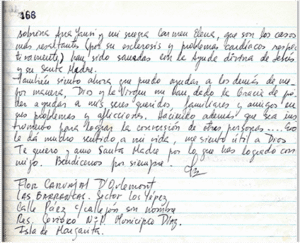 168
sobrina Ana Yensi y mi suegra Carmen Elena, que son los casos
más resaltantes (por su esclerosis y problemas cardíacos respec
tivamente) han sido sanadas con la Ayuda divina de Jesús
y su Santa Madre.
También siento ahora que puedo ayudar a los demás de me
jor manera, Dios y la Virgen me han dado la Gracia de po
der ayudar a mis seres queridos, familiares y amigos en
sus problemas y aflicciones. Haciendo además que sea ins
trumento para lograr la conversión de otras personas.... Esto
le da mucho sentido a mi vida, me siento útil a Dios
Te quiero y amo Santa Madre por lo que has logrado con
migo. Bendícenos por siempre!
Flor Carvajal D'
Las Barrancas. Sector Los López
Calle Páez c/callejón sin nombre
Res. N: Municipio Díaz.
Isla de Margarita.